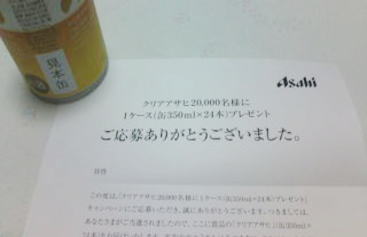 見本缶
Asahi
クリアアサヒ20,000名様に
1ケース(缶350ml×24本)プレゼント
ご応募ありがとうございました。
拝啓
この度は、「クリアアサヒ20,000名様に1ケース(缶350ml×24本)プレゼント」
キャンペーンにご応募いただき、誠にありがとうございます。つきましては、
あなたさまがご当選されましたので、ここに賞品の「クリアアサヒ(缶350ml×